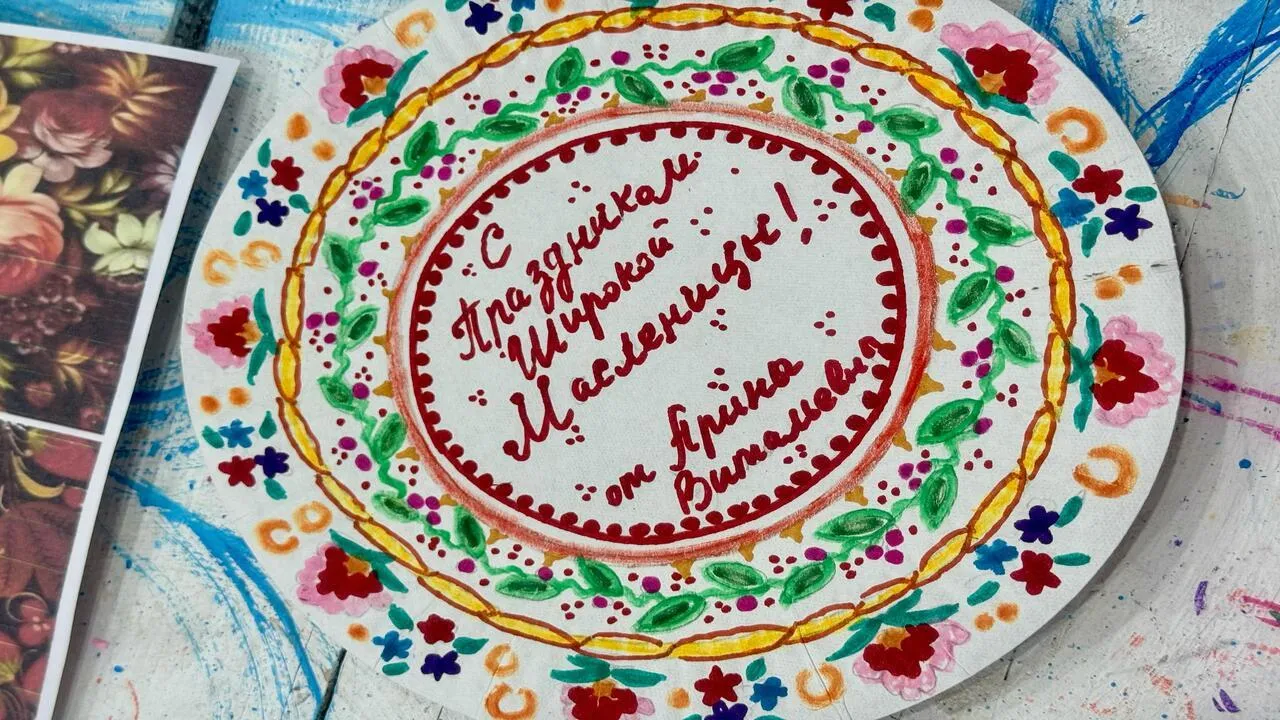 С
Праздником
Широкой
Масленицы!
от Арина
Виталиевна